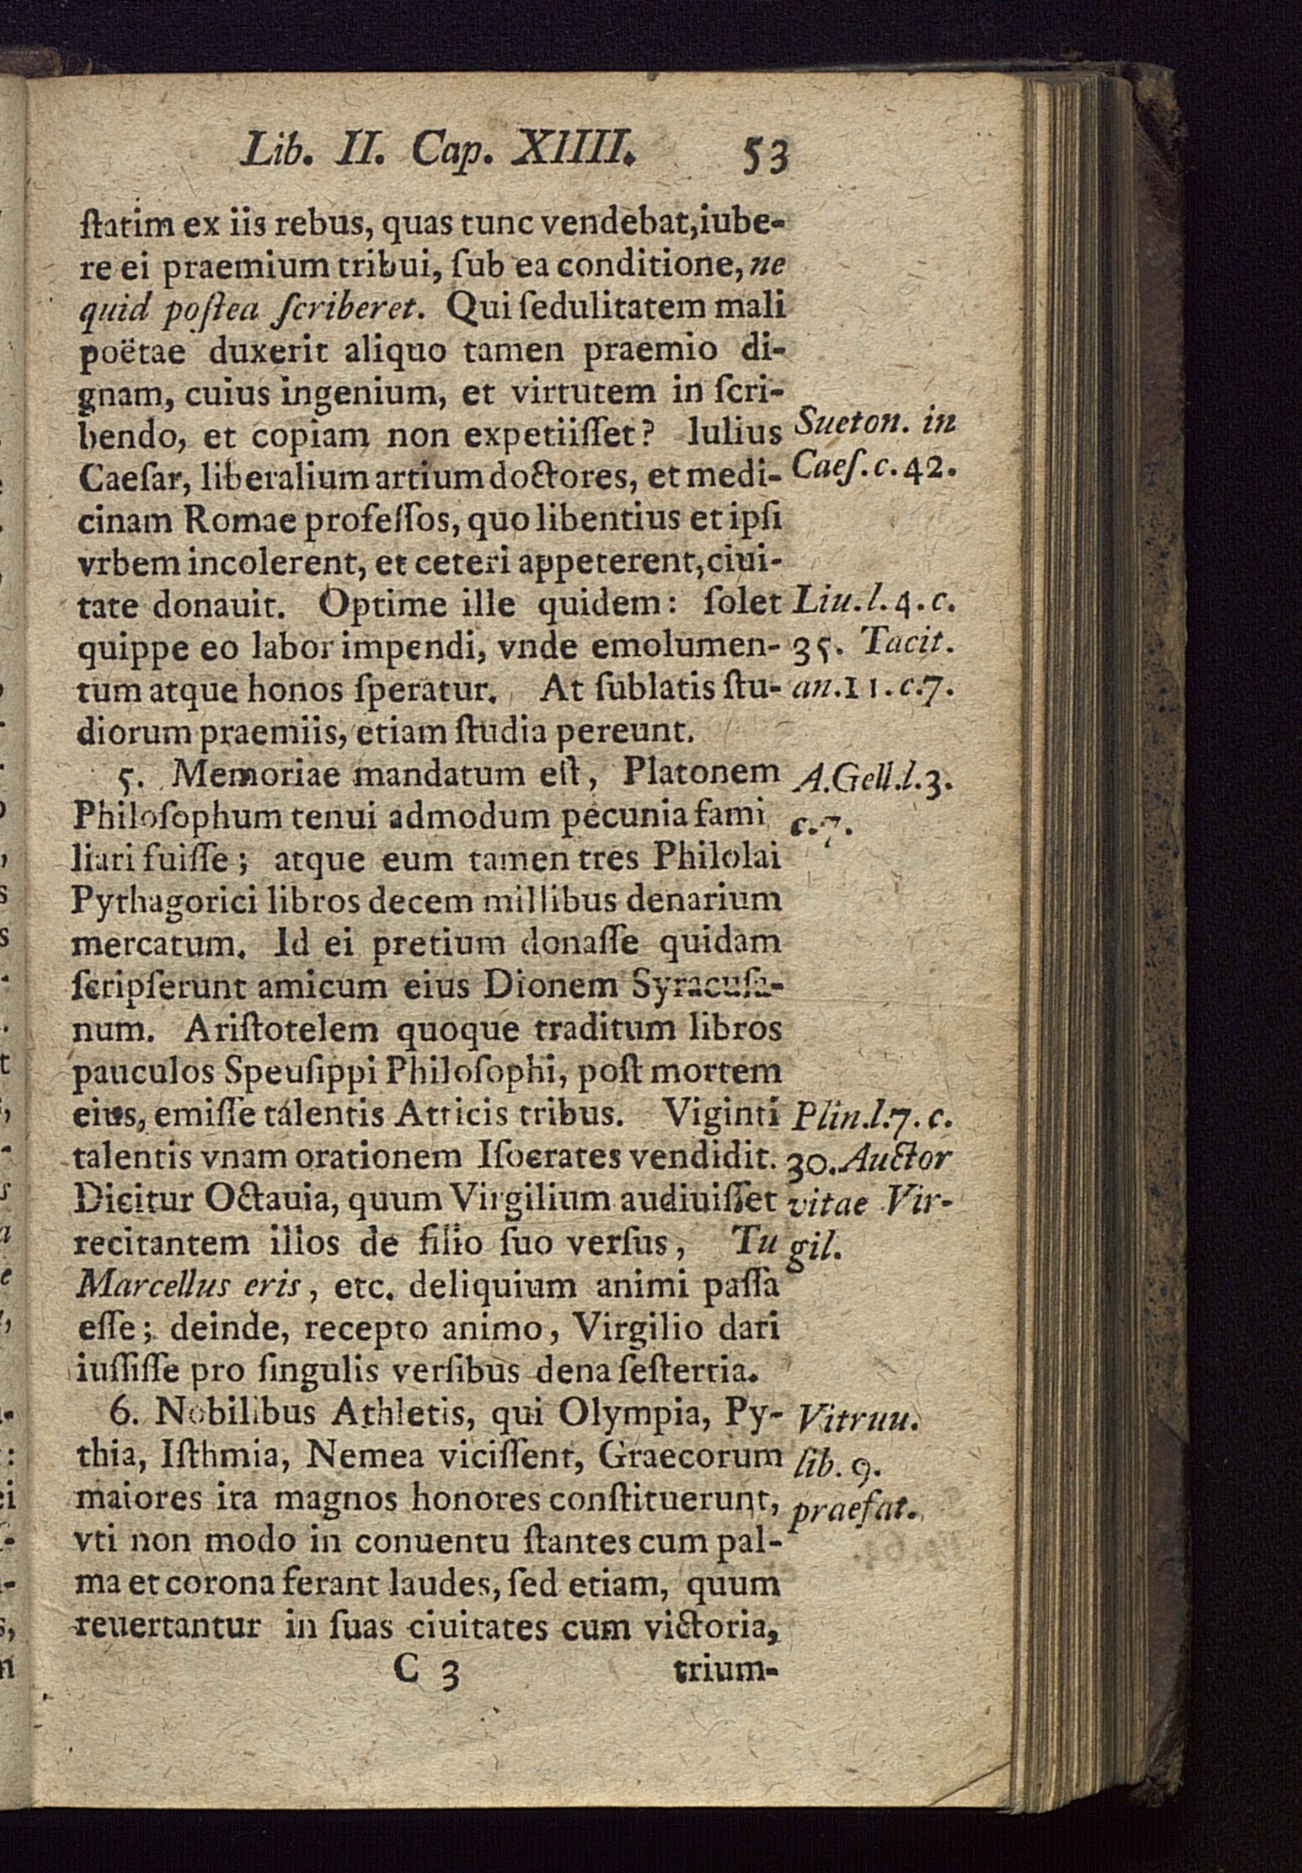 Lib. II. Cap. XIIII. 53
ſtatim ex iis rebus, quas tunc vendebat, iube-
re ei praemium tribui, ſub ea conditione, ne
quid poſtea ſcriberet. Qui ſedulitatem mali
poëtae duxerit aliquo tamen praemio di-
gnam, cuius ingenium, et virtutem in ſcri-
bendo, et copiam non expetiiſſet? Iulius
Caeſar, liberalium artium doctores, et medi-
cinam Romae profeſſos, quo libentius et ipſi
vrbem incolerent, et ceteri appeterent, ciui-
tate donauit. Optime ille quidem: ſolet
quippe eo labor impendi, vnde emolumen-
tum atque honos ſperatur. At ſublatis ſtu-
diorum praemiis, etiam ſtudia pereunt.
Sueton. in
Caeſ. c. 42.
Liu. l. 4. c.
35. Tacit.
an. 11. c. 7.
5. Memoriae mandatum eſt, Platonem
Philoſophum tenui admodum pecunia fami
liari fuiſſe; atque eum tamen tres Philolai
Pythagorici libros decem millibus denarium
mercatum. Id ei pretium donaſſe quidam
ſcripſerunt amicum eius Dionem Syracuſa-
num. Ariſtotelem quoque traditum libros
pauculos Speuſippi Philoſophi, poſt mortem
eius, emiſſe talentis Atticis tribus. Viginti
talentis vnam orationem Iſocrates vendidit.
Dicitur Octauia, quum Virgilium audiuiſſet
recitantem illos de filio ſuo verſus, Tu
Marcellus eris, etc. deliquium animi paſſa
eſſe; deinde, recepto animo, Virgilio dari
iuſſiſſe pro ſingulis verſibus dena ſeſtertia.
A. Gell. l. 3.
c. 7.
Plin. l. 7. c.
30. Auctor
vitae Vir-
gil.
6. Nobilibus Athletis, qui Olympia, Py-
thia, Iſthmia, Nemea viciſſent, Graecorum
maiores ita magnos honores conſtituerunt,
vti non modo in conuentu ſtantes cum pal-
ma et corona ferant laudes, ſed etiam, quum
reuertantur in ſuas ciuitates cum victoria,
Vitruu.
lib. 9.
praefat.
C 3 trium-